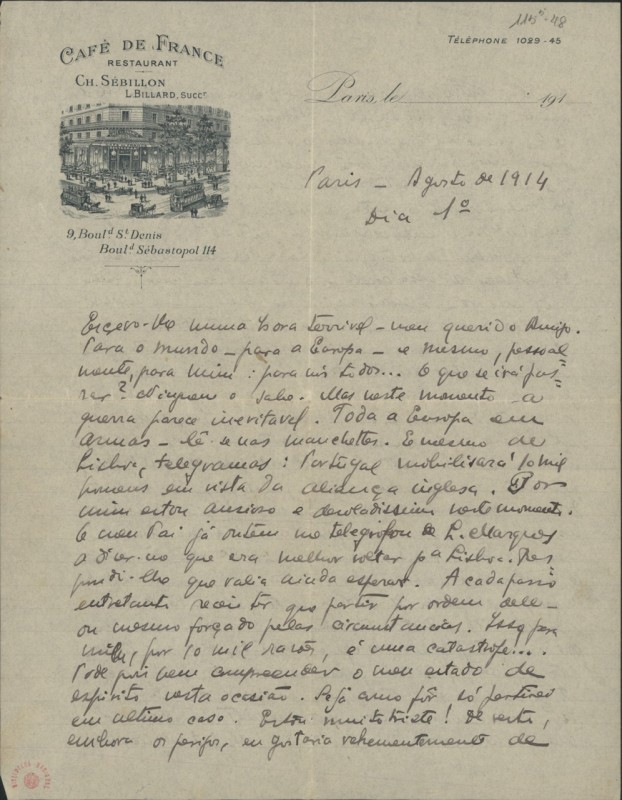 115⁵-48
CAFÉ DE FRANCE
RESTAURANT
CH. SÉBILLON
L. BILLARD, SUCCR
TÉLÉPHONE 1029-45
Paris, le 191
Paris – Agosto de 1914
Dia 1º
9, Boul.d S.t Denis
Boul.d Sébastopol 114
Escrevo-lhe numa hora terrivel – meu querido Amigo.
Para o mundo – para a Europa – e mesmo, pessoal-
mente, para mim: para nós todos... O que se irá pas-
sar? Ninguem o sabe. Mas neste momento a
guerra parece inevitavel. Toda a Europa em
armas – lê-se nas manchettes. E mesmo de
Lisboa, telegramas: Portugal mobilisará 10 mil
homens em vista da aliança inglesa. Por
mim estou ansioso e desoladissimo neste momento.
O meu Pai já ontem me telegrafou de L. Marques
a dizer-me que era melhor voltar pª Lisboa. Res-
pondi-lhe que valia ainda esperar. A cada passo
entretanto receio ter que partir por ordem dele –
ou mesmo forçado pelas circunstancias. Isso para
mim, por 10 mil razões, é uma catastrofe...
Pode pois bem compreender o meu estado de
espirito nesta ocasião. Seja como fôr só partirei
em ultimo caso. Estou muito triste! De resto,
embora os perigos, eu gostaria vehementemente de